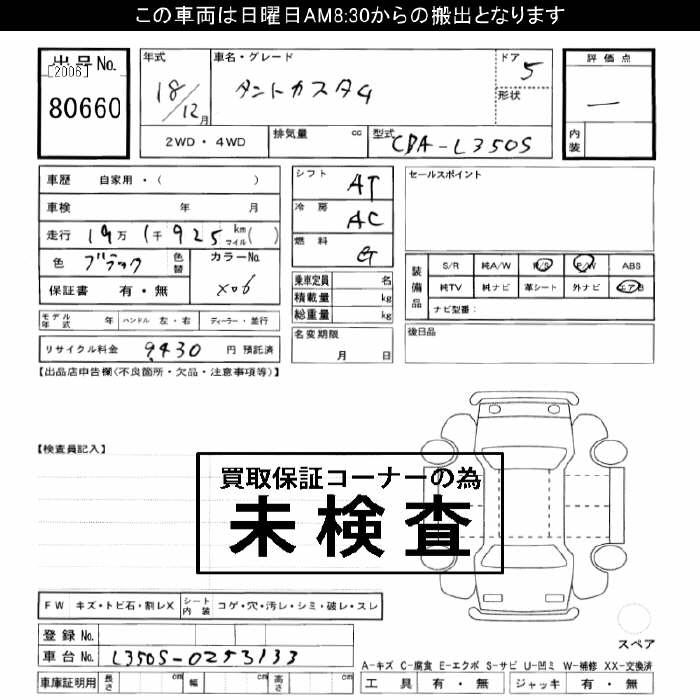 この車両は日曜日AM8:30からの搬出となります
出品No.
[2006]
80660
年式
18/12月
車名・グレード
タントカスタム
ドア
5
形状
評価点
—
内装
2WD・4WD
排気量 cc
型式 CBA-L350S
車歴 自家用・( )
車検 年 月
走行 19万1千925km マイル( )
色 ブラック 色替
カラーNo. X06
保証書 有・無
シフト AT
冷房 AC
燃料 G
乗車定員 名
積載量 kg
総重量 kg
セールスポイント
装備品
S/R 純A/W P/S P/W ABS
純TV 純ナビ 革シート 外ナビ エアB
ナビ型番:
モデル年式 年 ハンドル 左・右 ディーラー・並行
名変期限
月 日
後日品
リサイクル料金 9430 円 預託済
【出品店申告欄(不良箇所・欠品・注意事項等)】
【検査員記入】
買取保証コーナーの為
未検査
FW キズ・トビ石・割レX シート内装 コゲ・穴・汚レ・シミ・破レ・スレ
登録No.
車台No. L350S-0253133
車庫証明用 長さ cm 幅 cm 高さ cm
スペア
A-キズ C-腐食 E-エクボ S-サビ U-凹ミ W-補修 XX-交換済
工具 有・無 ジャッキ 有・無